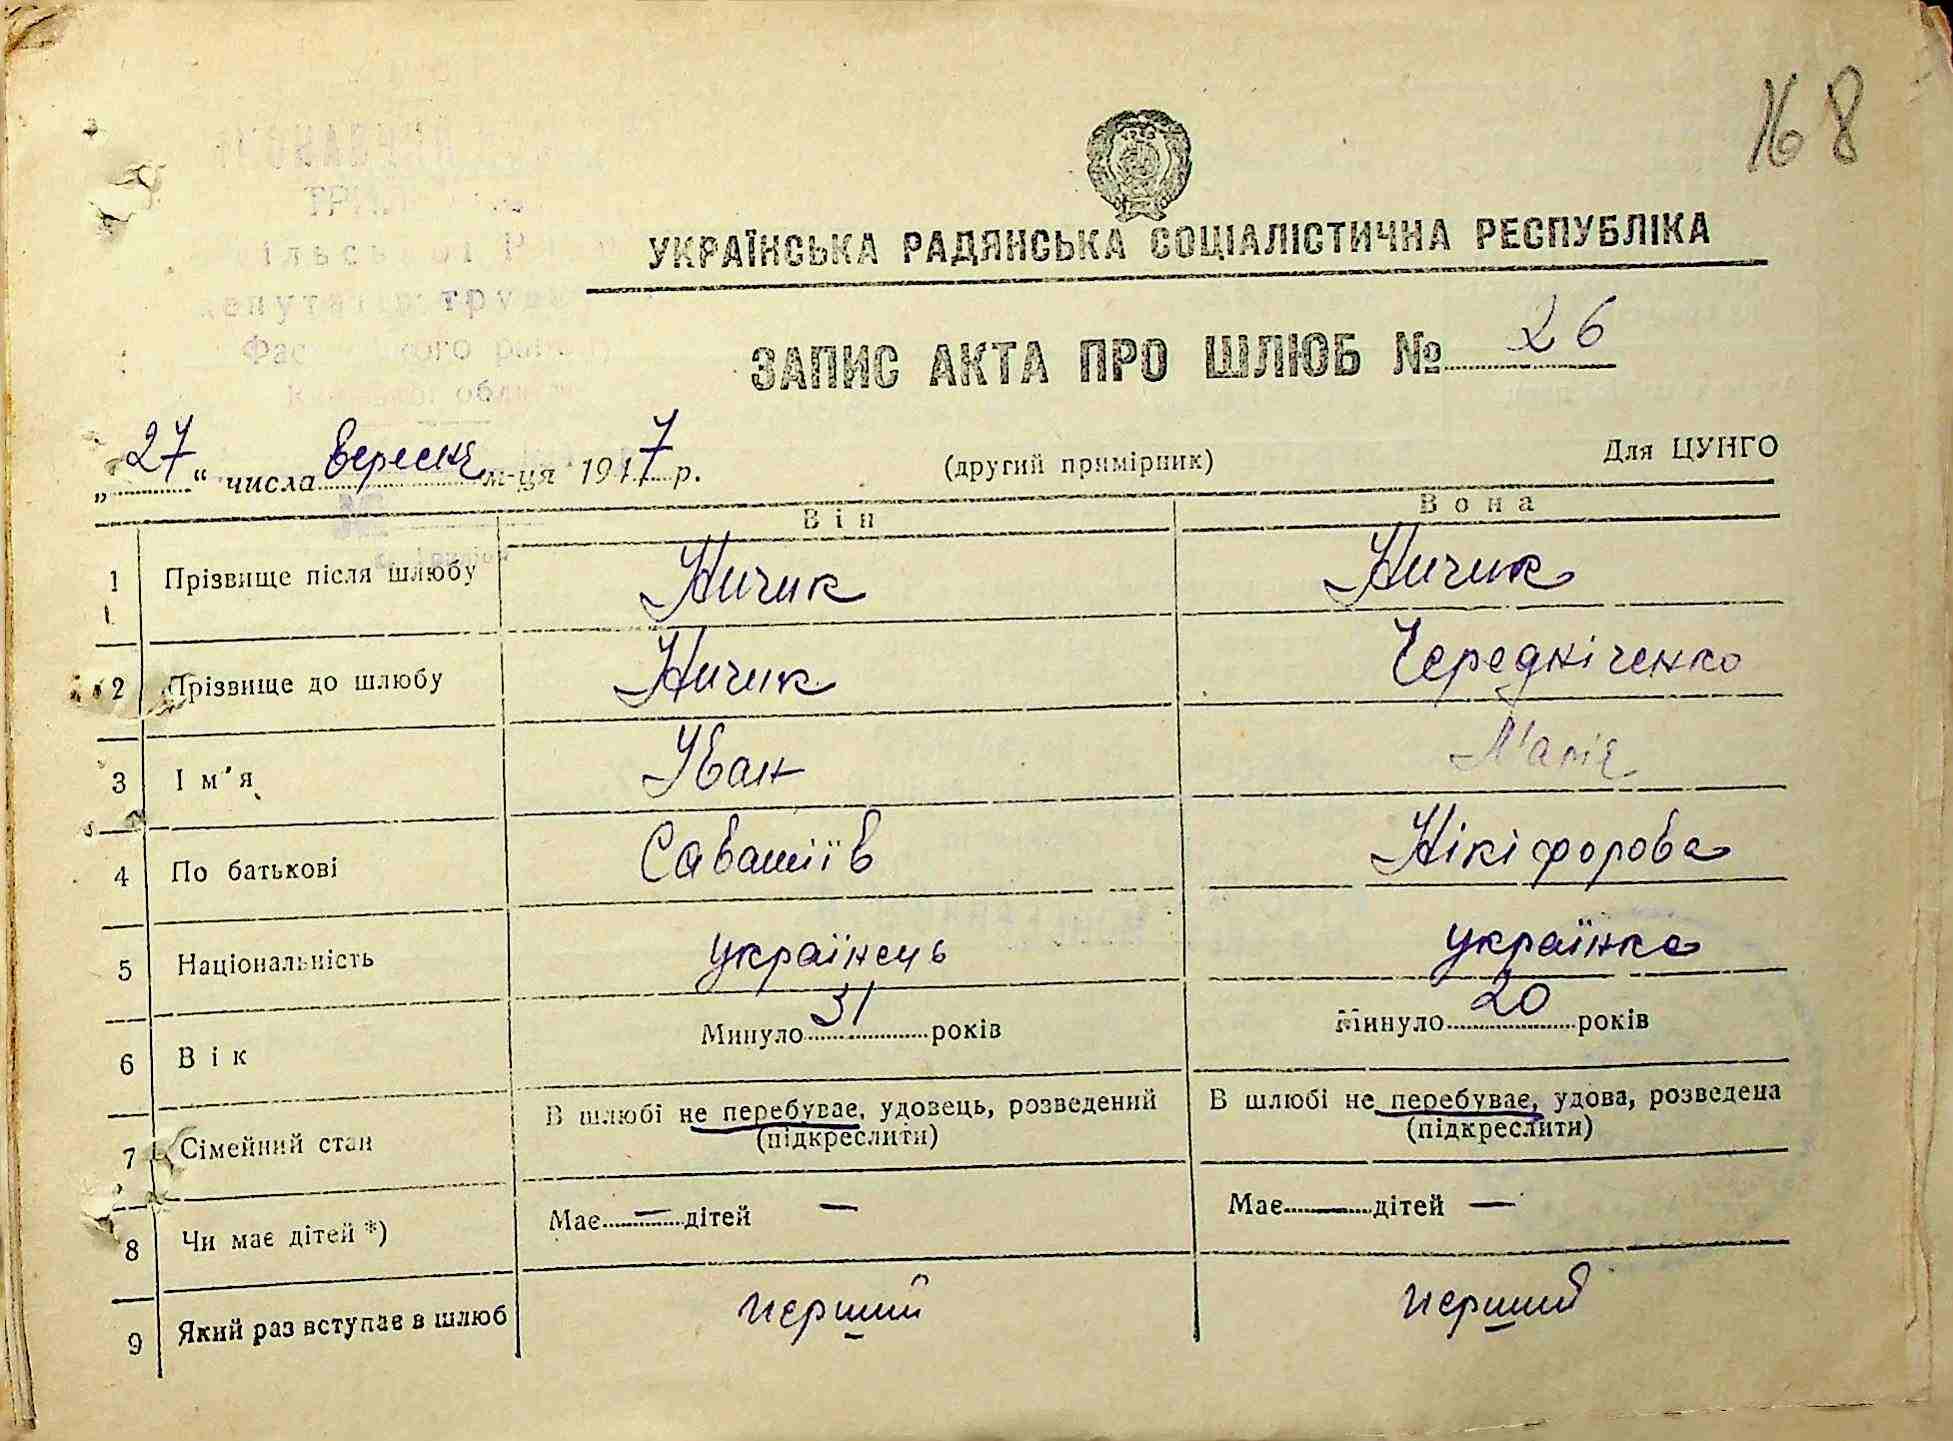 168
УКРАЇНСЬКА РАДЯНСЬКА СОЦІАЛІСТИЧНА РЕСПУБЛІКА
ЗАПИС АКТА ПРО ШЛЮБ № 26
„27“ числа Вересня м-ця 1947 р. (другий примірник) Для ЦУНГО
Він Вона
1 Прізвище після шлюбу Ничик Ничик
2 Прізвище до шлюбу Ничик Чередніченко
3 Ім'я Іван Марія
4 По батькові Саватіїв Нікіфорова
5 Національність українець українка
6 Вік Минуло 31 років Минуло 20 років
7 Сімейний стан В шлюбі не перебуває, удовець, розведений В шлюбі не перебуває, удова, розведена
(підкреслити) (підкреслити)
8 Чи має дітей *) Має — дітей — Має — дітей —
9 Який раз вступає в шлюб перший перший